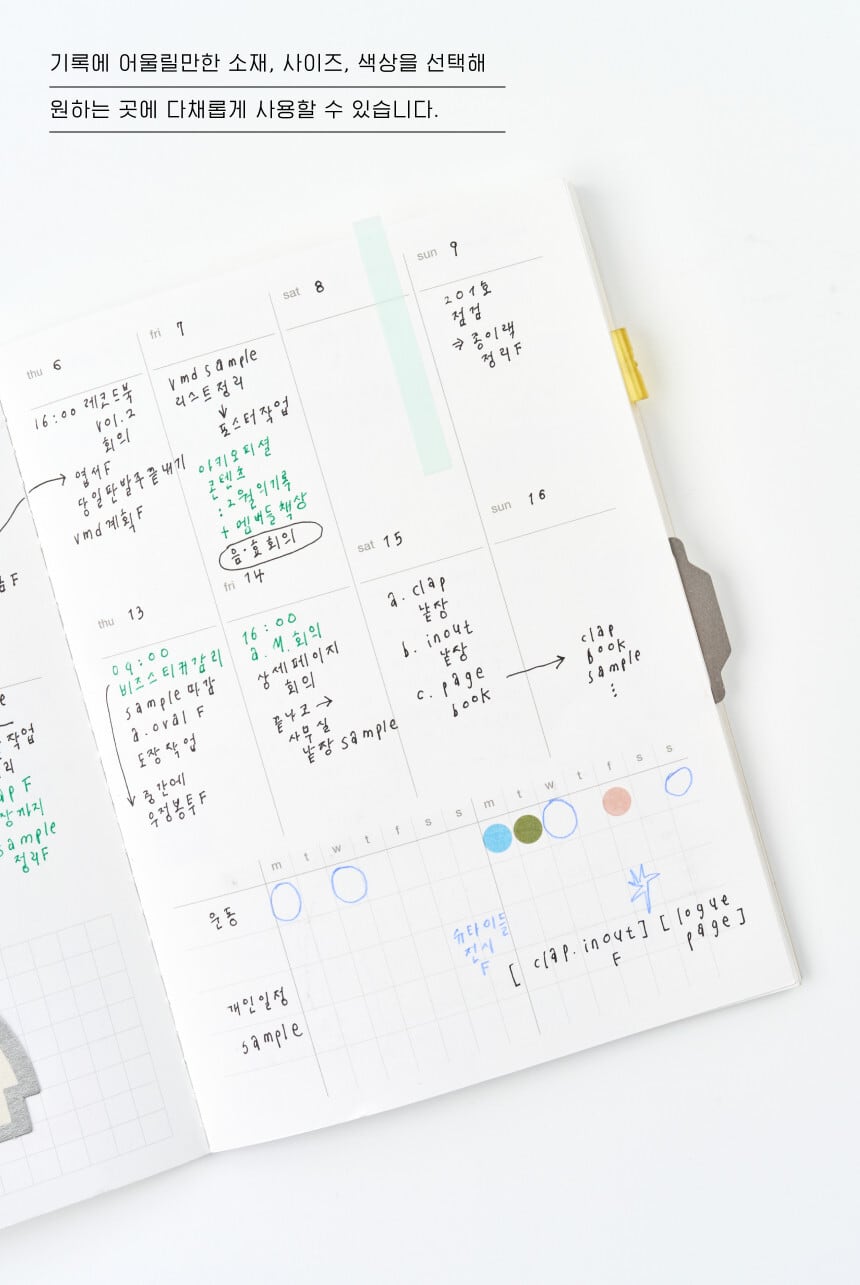 기록에 어울릴만한 소재, 사이즈, 색상을 선택해
원하는 곳에 다채롭게 사용할 수 있습니다.
thu 6
16:00 레코드북
vol.2
회의
엽서F
당일판발주끝내기
vmd계획F
fri 7
vmd sample
리스트정리
↓
포스터작업
아키오피셜
콘텐츠
: 2월의기록
+ 멤버들책상
음·효회의
sat 8
sun 9
201호
점검
⇒ 종이랙
정리F
thu 13
09:00
비즈스티커감리
sample마감
a.oval F
도장작업
중간에
우정봉투F
fri 14
16:00
a.M.회의
상세페이지
회의
끝나고→
사무실
낱장sample
sat 15
a. clap
낱장
b. inout
낱장
c. page
book
sun 16
clap
book
sample
⋮
작업
장까지
sample
정리F
m t w t f s s m t w t f s s
운동
전시
F
[ clap.inout ] [ logue
F
page ]
개인일정
sample